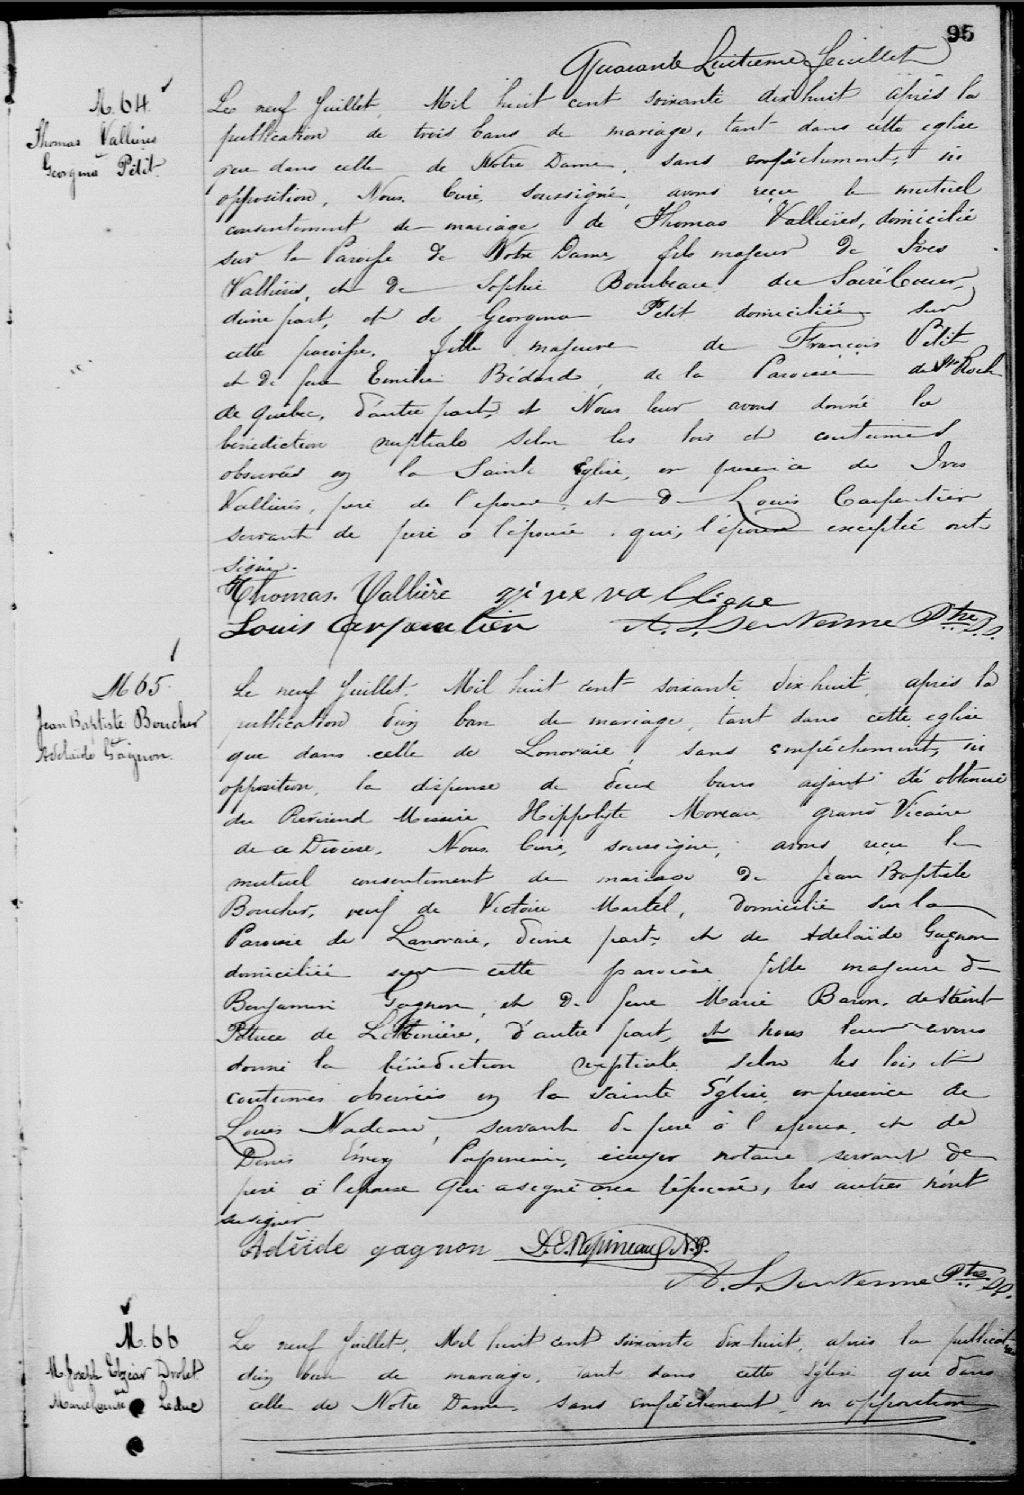 95
Quarante huitieme feuillet
M. 64
Thomas Vallières
et
Georgina Petit.
Le neuf Juillet, Mil huit cent soixante dix huit après la
publication de trois bans de mariage, tant dans cette eglise
que dans celle de Notre Dame, sans empêchement, ni
opposition, Nous Curé, soussigné, avons reçu le mutuel
consentement de mariage de Thomas Vallières, domicilié
sur la Paroisse de Notre Dame, fils majeur de Ives
Vallières, et de Sophie Bombeau du Sacré Coeur,
d'une part, et de Georgina Petit domiciliée sur
cette paroisse, fille majeure de François Petit
et de feue Emilie Bédard, de la Paroisse de St Roch
de Québec, d'autre part, et Nous leur avons donné la
bénédiction nuptiale selon les lois et coutumes
observées en la Sainte Eglise, en presence de Ives
Vallières, père de l'epoux, et de Louis Carpentier
servant de père à l'épouse, qui, l'épouse exceptée ont
signé.
Thomas Vallière
Louis Carpentier A. L. Sentenne Ptre S.S.
M 65.
Jean Baptiste Boucher
et
Adelaide Gagnon.
Le neuf Juillet, Mil huit cent soixante dix huit, après la
publication d'un ban de mariage, tant dans cette eglise
que dans celle de Lonoraie, sans empêchement, ni
opposition, la dispense de deux bans ayant été obtenue
du Révérend Messire Hippolyte Moreau, grand Vicaire
de ce Diocèse, Nous Curé, soussigné, avons reçu le
mutuel consentement de mariage de Jean Baptiste
Boucher, veuf de Victoire Martel, domicilié sur la
Paroisse de Lanoraie, d'une part, et de Adelaïde Gagnon
domiciliée sur cette paroisse fille majeure de
Benjamin Gagnon, et de feue Marie Baron, de Saint
de Lotbinière, d'autre part, et nous leur avons
donné la bénédiction nuptiale selon les lois et
coutumes observées en la Sainte Église, en presence de
Louis Nadeau, servant de père à l'epoux, et de
Denis Émery Papineau, écuyer notaire servant de
père à l'épouse qui a signé avec l'épousée, les autres n'ont
su signer
Adéiide gagnon D. E. Papineau N.P.
A. L. Sentenne Ptre S.S.
M. 66
M. Joseph Elzéar Drolet
Leduc
Le neuf Juillet, Mil huit cent soixante dix-huit, après la publication
d'un ban de mariage, tant dans cette Eglise que dans
celle de Notre Dame, sans empêchement, ni opposition